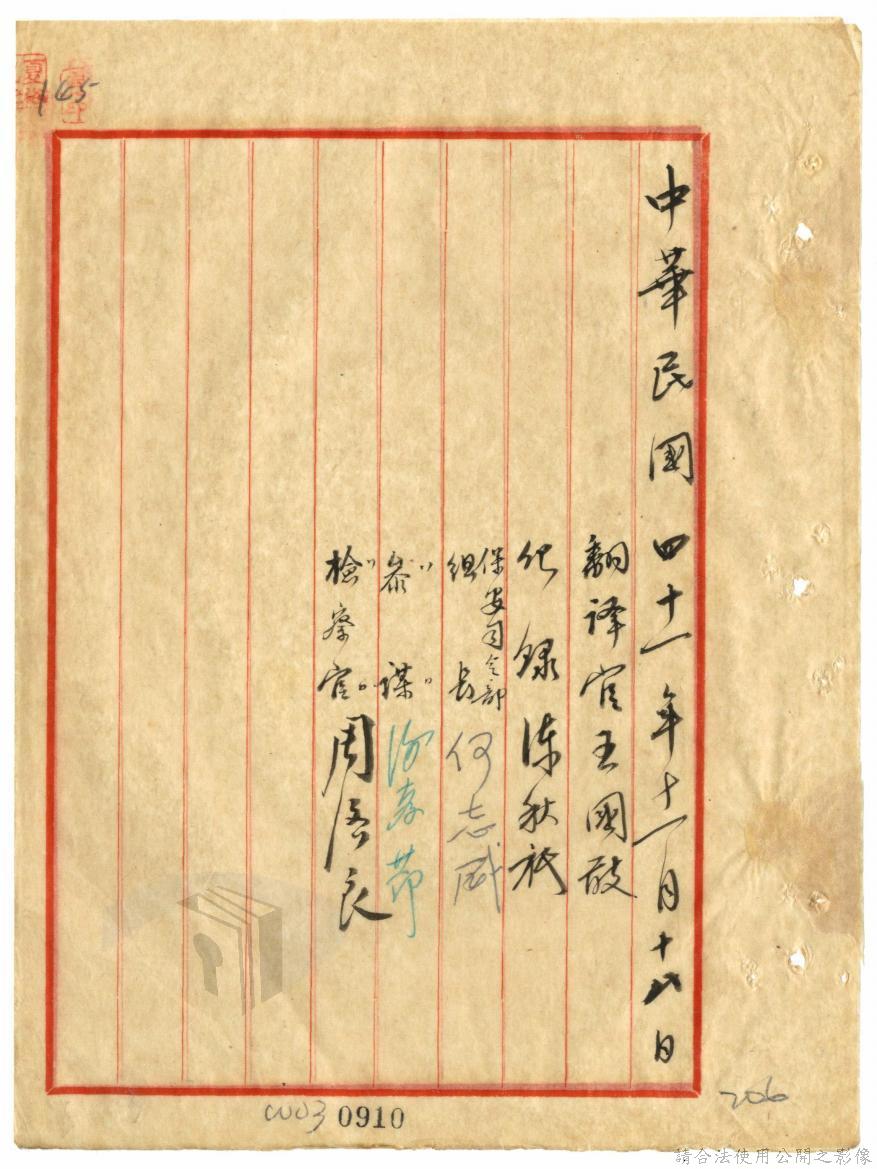 中華民國四十一年十一月十八日
翻译官王國
紀錄陳秋
保安司令部
組長何志威
〃參謀〃
〃檢察官〃周良
145
0910
206
請合法使用公開之影像